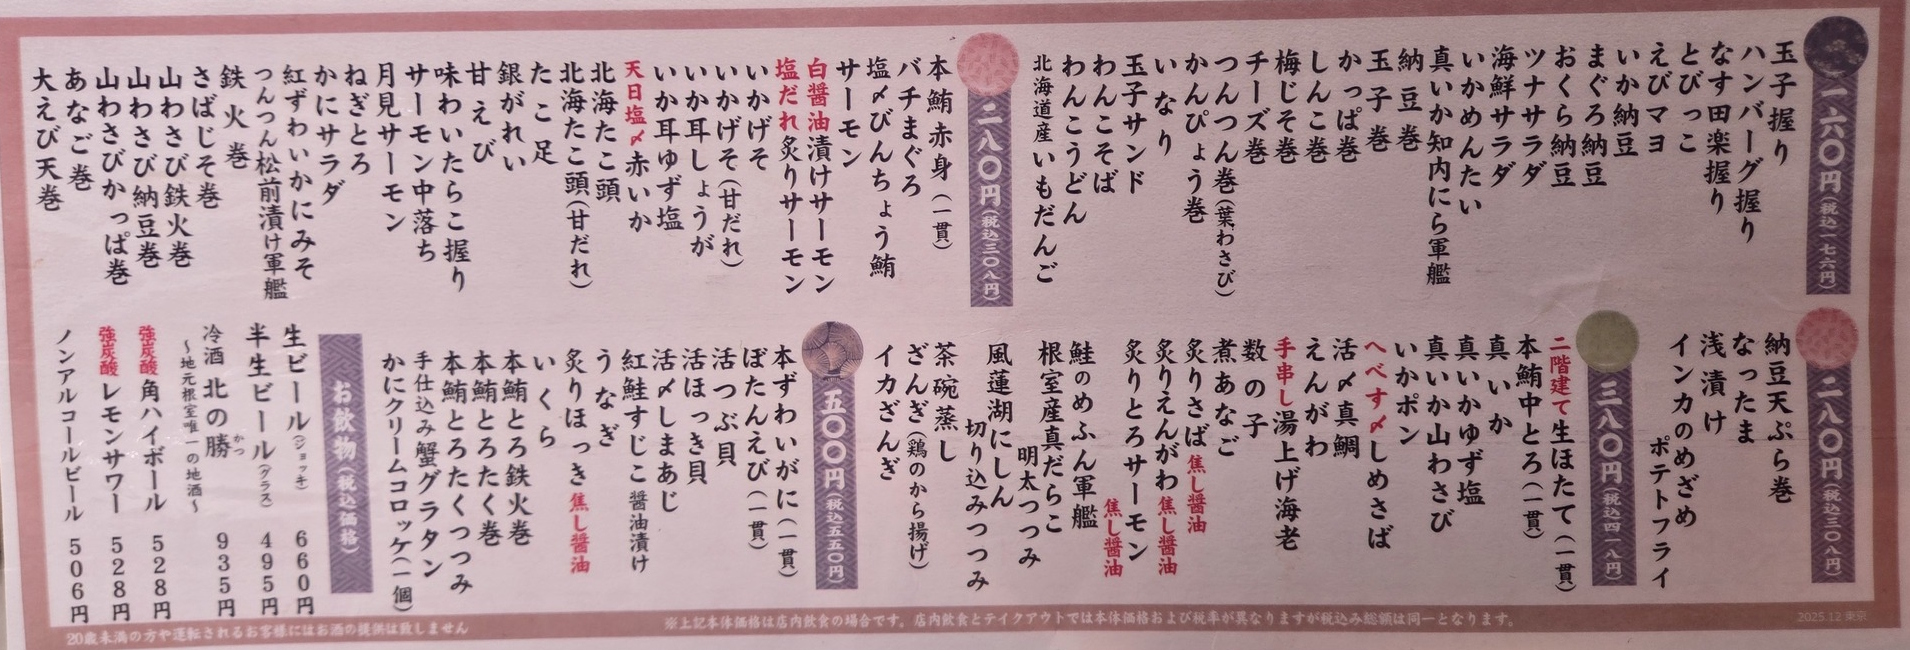 一六〇円(税込一七六円)
玉子握り
ハンバーグ握り
なす田楽握り
とびっこ
えびマヨ
いか納豆
まぐろ納豆
おくら納豆
ツナサラダ
海鮮サラダ
いかめんたい
真いか知内にら軍艦
納豆巻
玉子巻
かっぱ巻
しんこ巻
梅じそ巻
チーズ巻
つんつん巻(葉わさび)
かんぴょう巻
いなり
玉子サンド
わんこそば
わんこうどん
北海道産いもだんご
二八〇円(税込三〇八円)
本鮪赤身(一貫)
バチまぐろ
塩〆びんちょう鮪
サーモン
白醤油漬けサーモン
塩だれ炙りサーモン
いかげそ
いかげそ(甘だれ)
いか耳しょうが
いか耳ゆず塩
天日塩〆赤いか
北海たこ頭
北海たこ頭(甘だれ)
たこ足
銀がれい
甘えび
味わいたらこ握り
サーモン中落ち
月見サーモン
ねぎとろ
かにサラダ
紅ずわいかにみそ
つんつん松前漬け軍艦
鉄火巻
さばじそ巻
山わさび鉄火巻
山わさび納豆巻
山わさびかっぱ巻
あなご巻
大えび天巻
二八〇円(税込三〇八円)
納豆天ぷら巻
なったま
浅漬け
インカのめざめ
ポテトフライ
三八〇円(税込四一八円)
二階建て生ほたて(一貫)
本鮪中とろ(一貫)
真いか
真いかゆず塩
真いか山わさび
いかポン
へべす〆しめさば
活〆真鯛
えんがわ
手串し湯上げ海老
数の子
煮あなご
炙りさば焦し醤油
炙りえんがわ焦し醤油
炙りとろサーモン
焦し醤油
鮭のめふん軍艦
根室産真だらこ
明太つつみ
風蓮湖にしん
切り込みつつみ
茶碗蒸し
ざんぎ(鶏のから揚げ)
イカざんぎ
五〇〇円(税込五五〇円)
本ずわいがに(一貫)
ぼたんえび(一貫)
活つぶ貝
活ほっき貝
活〆しまあじ
紅鮭すじこ醤油漬け
うなぎ
炙りほっき焦し醤油
いくら
本鮪とろ鉄火巻
本鮪とろたく巻
本鮪とろたくつつみ
手仕込み蟹グラタン
かにクリームコロッケ(一個)
お飲物(税込価格)
生ビール(ジョッキ) 660円
半生ビール(グラス) 495円
冷酒 北の勝 かつ 935円
～地元根室唯一の地酒～
強炭酸角ハイボール 528円
強炭酸レモンサワー 528円
ノンアルコールビール 506円
20歳未満の方や運転されるお客様にはお酒の提供は致しません
※上記本体価格は店内飲食の場合です。店内飲食とテイクアウトでは本体価格および税率が異なりますが税込み総額は同一となります。
2025.12 東京